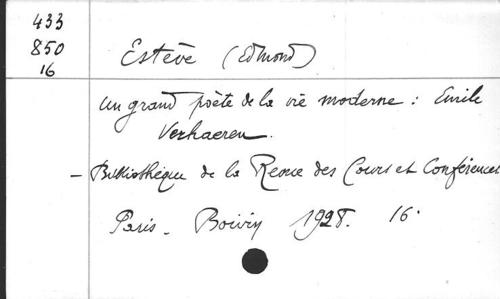 433
850
16
Estève (Edmond)
Un grand poète de la vie moderne : Emile
Verhaeren.
- Bibliothèque de la Revue des Cours et Conférences
Paris - Boivin 1928. 16°